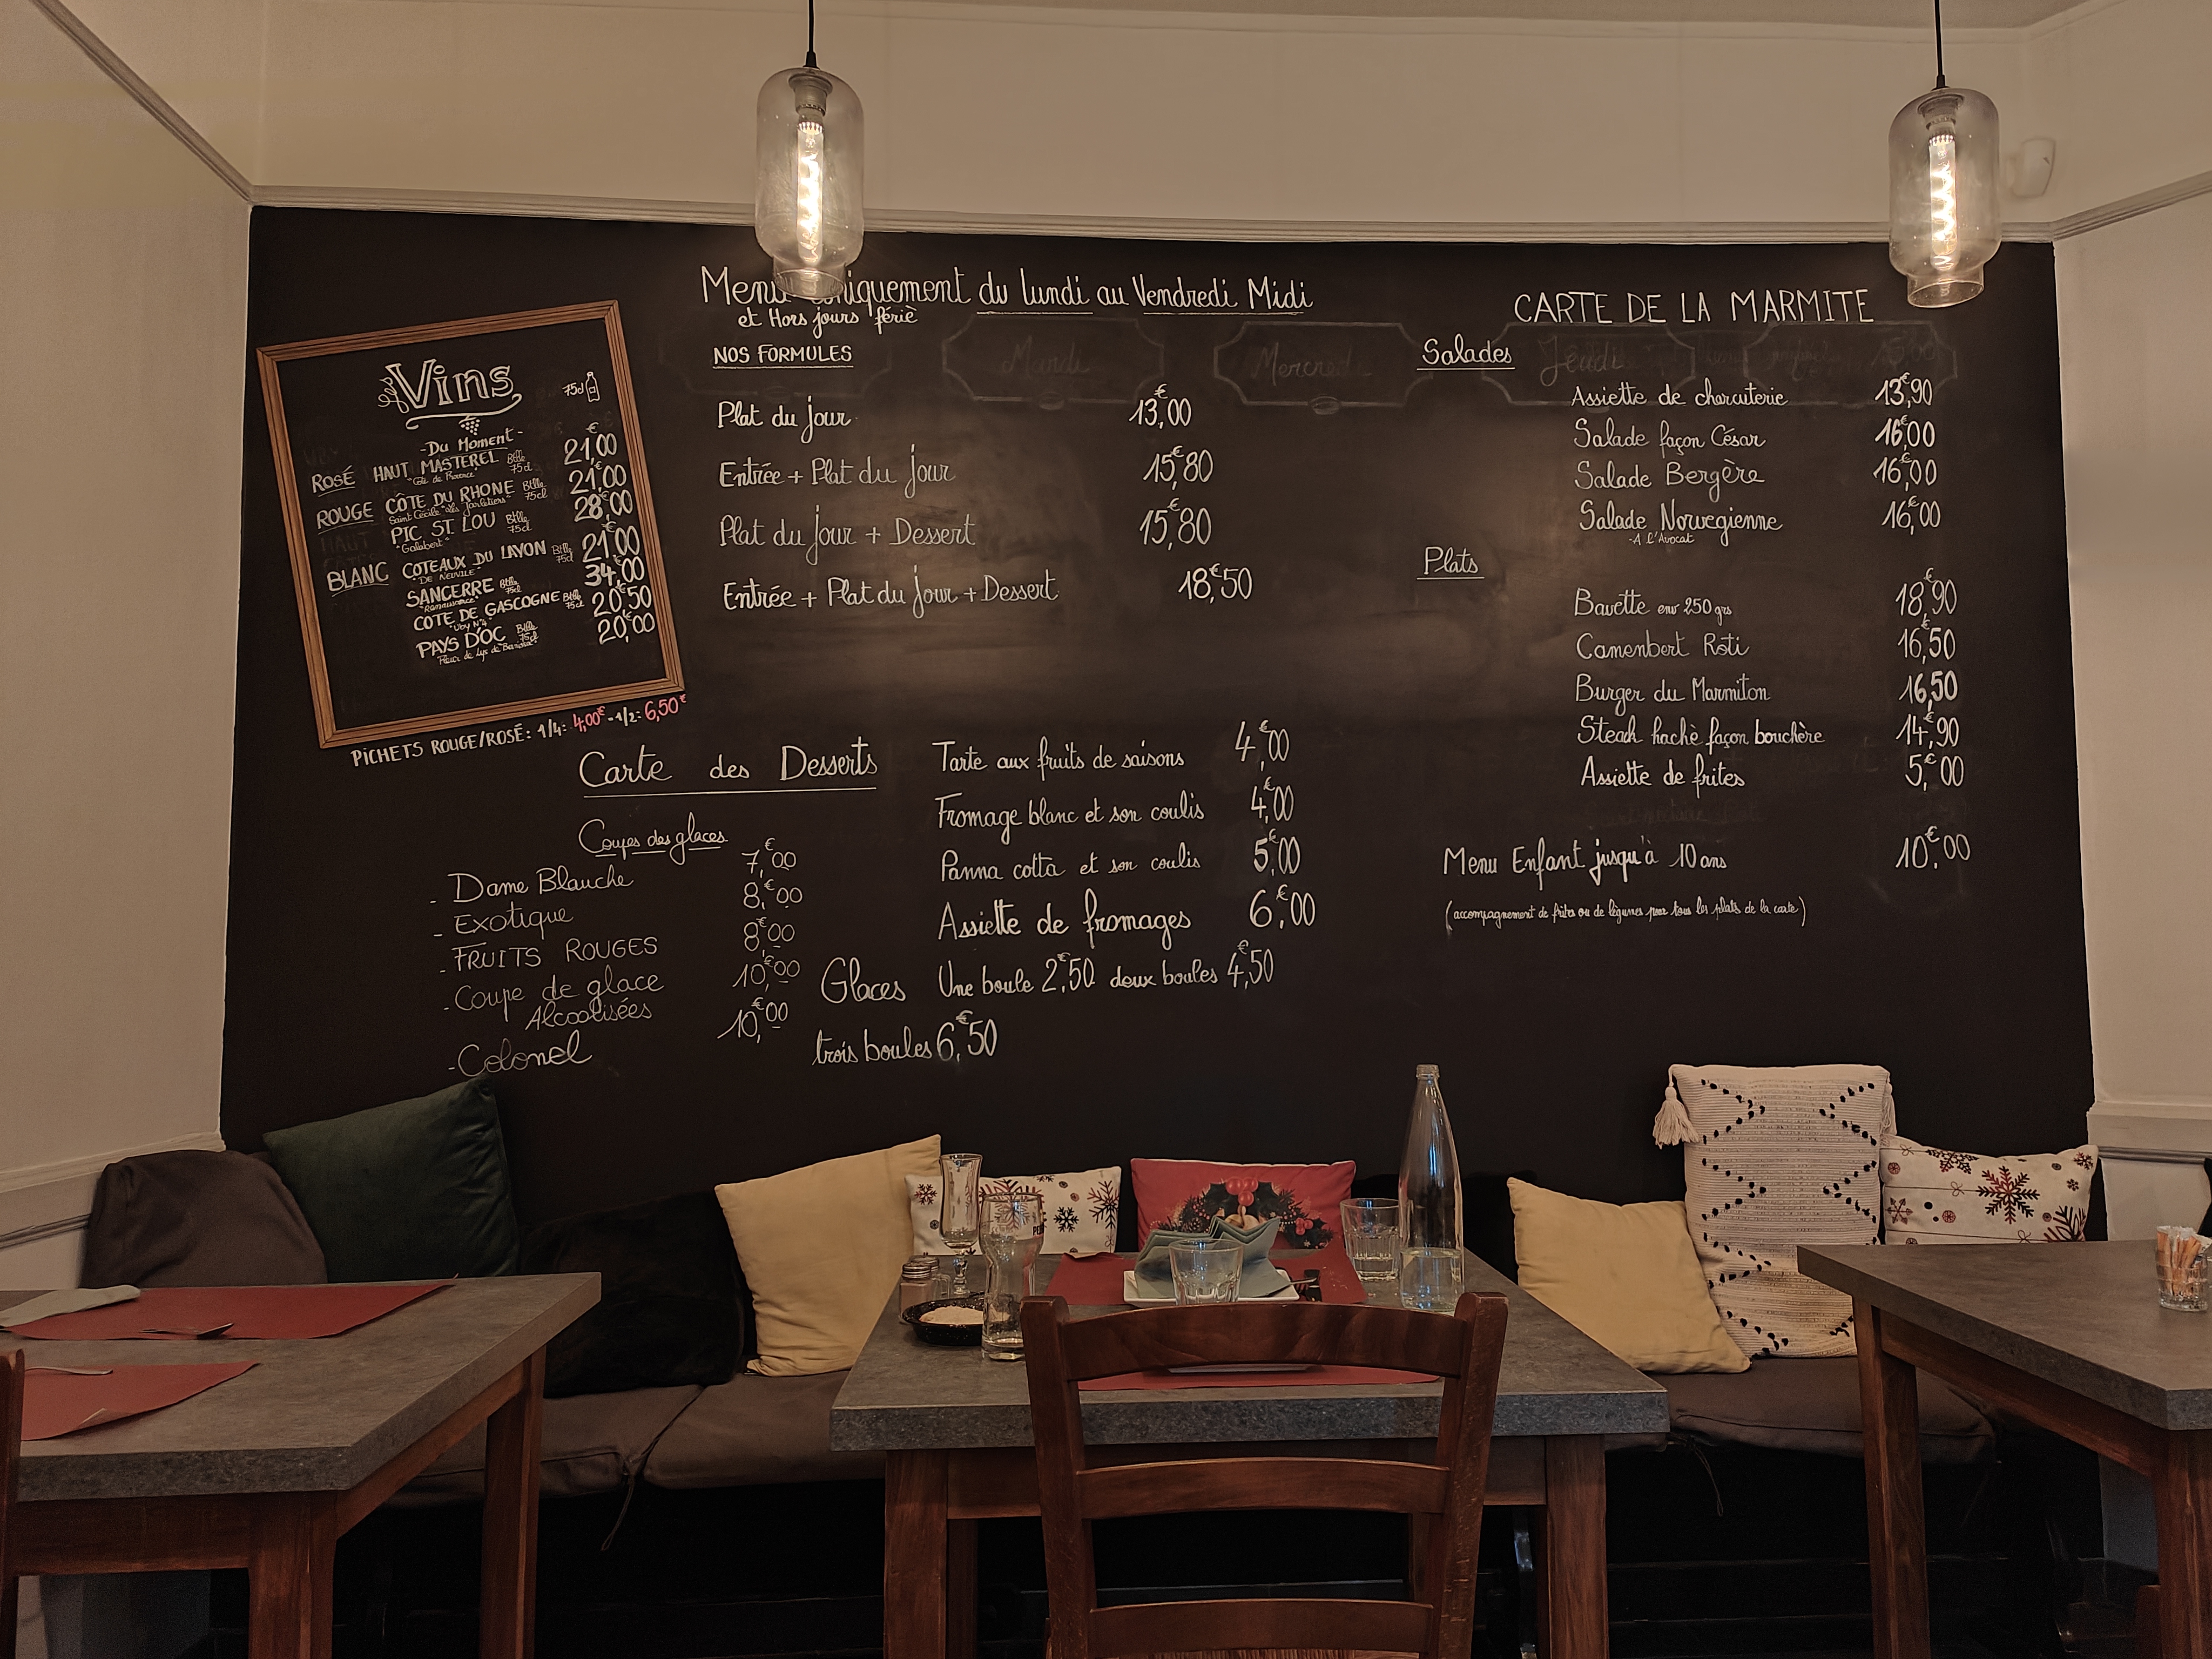 Vins
75cl
-Du Moment-
€
ROSÉ HAUT MASTEREL Btlle 75cl 21,00
"Côte de Provence"
ROUGE CÔTE DU RHONE Btlle 75cl 21,€00
Saint Cécile "les Jarletiers"
PIC ST. LOU Btlle 75cl 28,€00
"Galabert"
BLANC COTEAUX DU LAYON Btlle 75cl 21,€00
"DE NEUVILE"
SANCERRE Btlle 75cl 34,€00
"Renaissance"
COTE DE GASCOGNE Btlle 75cl 20,€50
"Uby N°4"
PAYS D'OC Btlle 75cl 20,€00
Fleur de Lys de
PICHETS ROUGE/ROSÉ: 1/4: 4,00€ - 1/2: 6,50€
Menu uniquement du lundi au Vendredi Midi
et Hors jours fériè
NOS FORMULES
Mardi
Mercredi
Plat du jour 13,€00
Entrée + Plat du jour 15,€80
Plat du jour + Dessert 15,€80
Entrée + Plat du jour + Dessert 18,€50
Carte des Desserts
Coupes des glaces
- Dame Blanche 7,€00
- Exotique 8,€00
- FRUITS ROUGES 8,€00
- Coupe de glace 10,€00
Alcoolisées
- Colonel 10,€00
Tarte aux fruits de saisons 4,€00
Fromage blanc et son coulis 4,€00
Panna cotta et son coulis 5,€00
Assiette de fromages 6,€00
Glaces Une boule 2,€50 deux boules 4,€50
trois boules 6,€50
CARTE DE LA MARMITE
Salades
Jeudi
Assiette de charcuterie 13,€90
Salade façon César 16,€00
Salade Bergère 16,€00
Salade Norwegienne 16,€00
-A l'Avocat
Plats
Bavette env 250 grs 18,€90
Camenbert Roti 16,€50
Burger du Marmiton 16,€50
Steack hachè façon bouchère 14,€90
Assiette de frites 5,€00
Menu Enfant jusqu'à 10 ans 10,€00
(accompagnement de frites ou de légumes pour tous les plats de la carte)